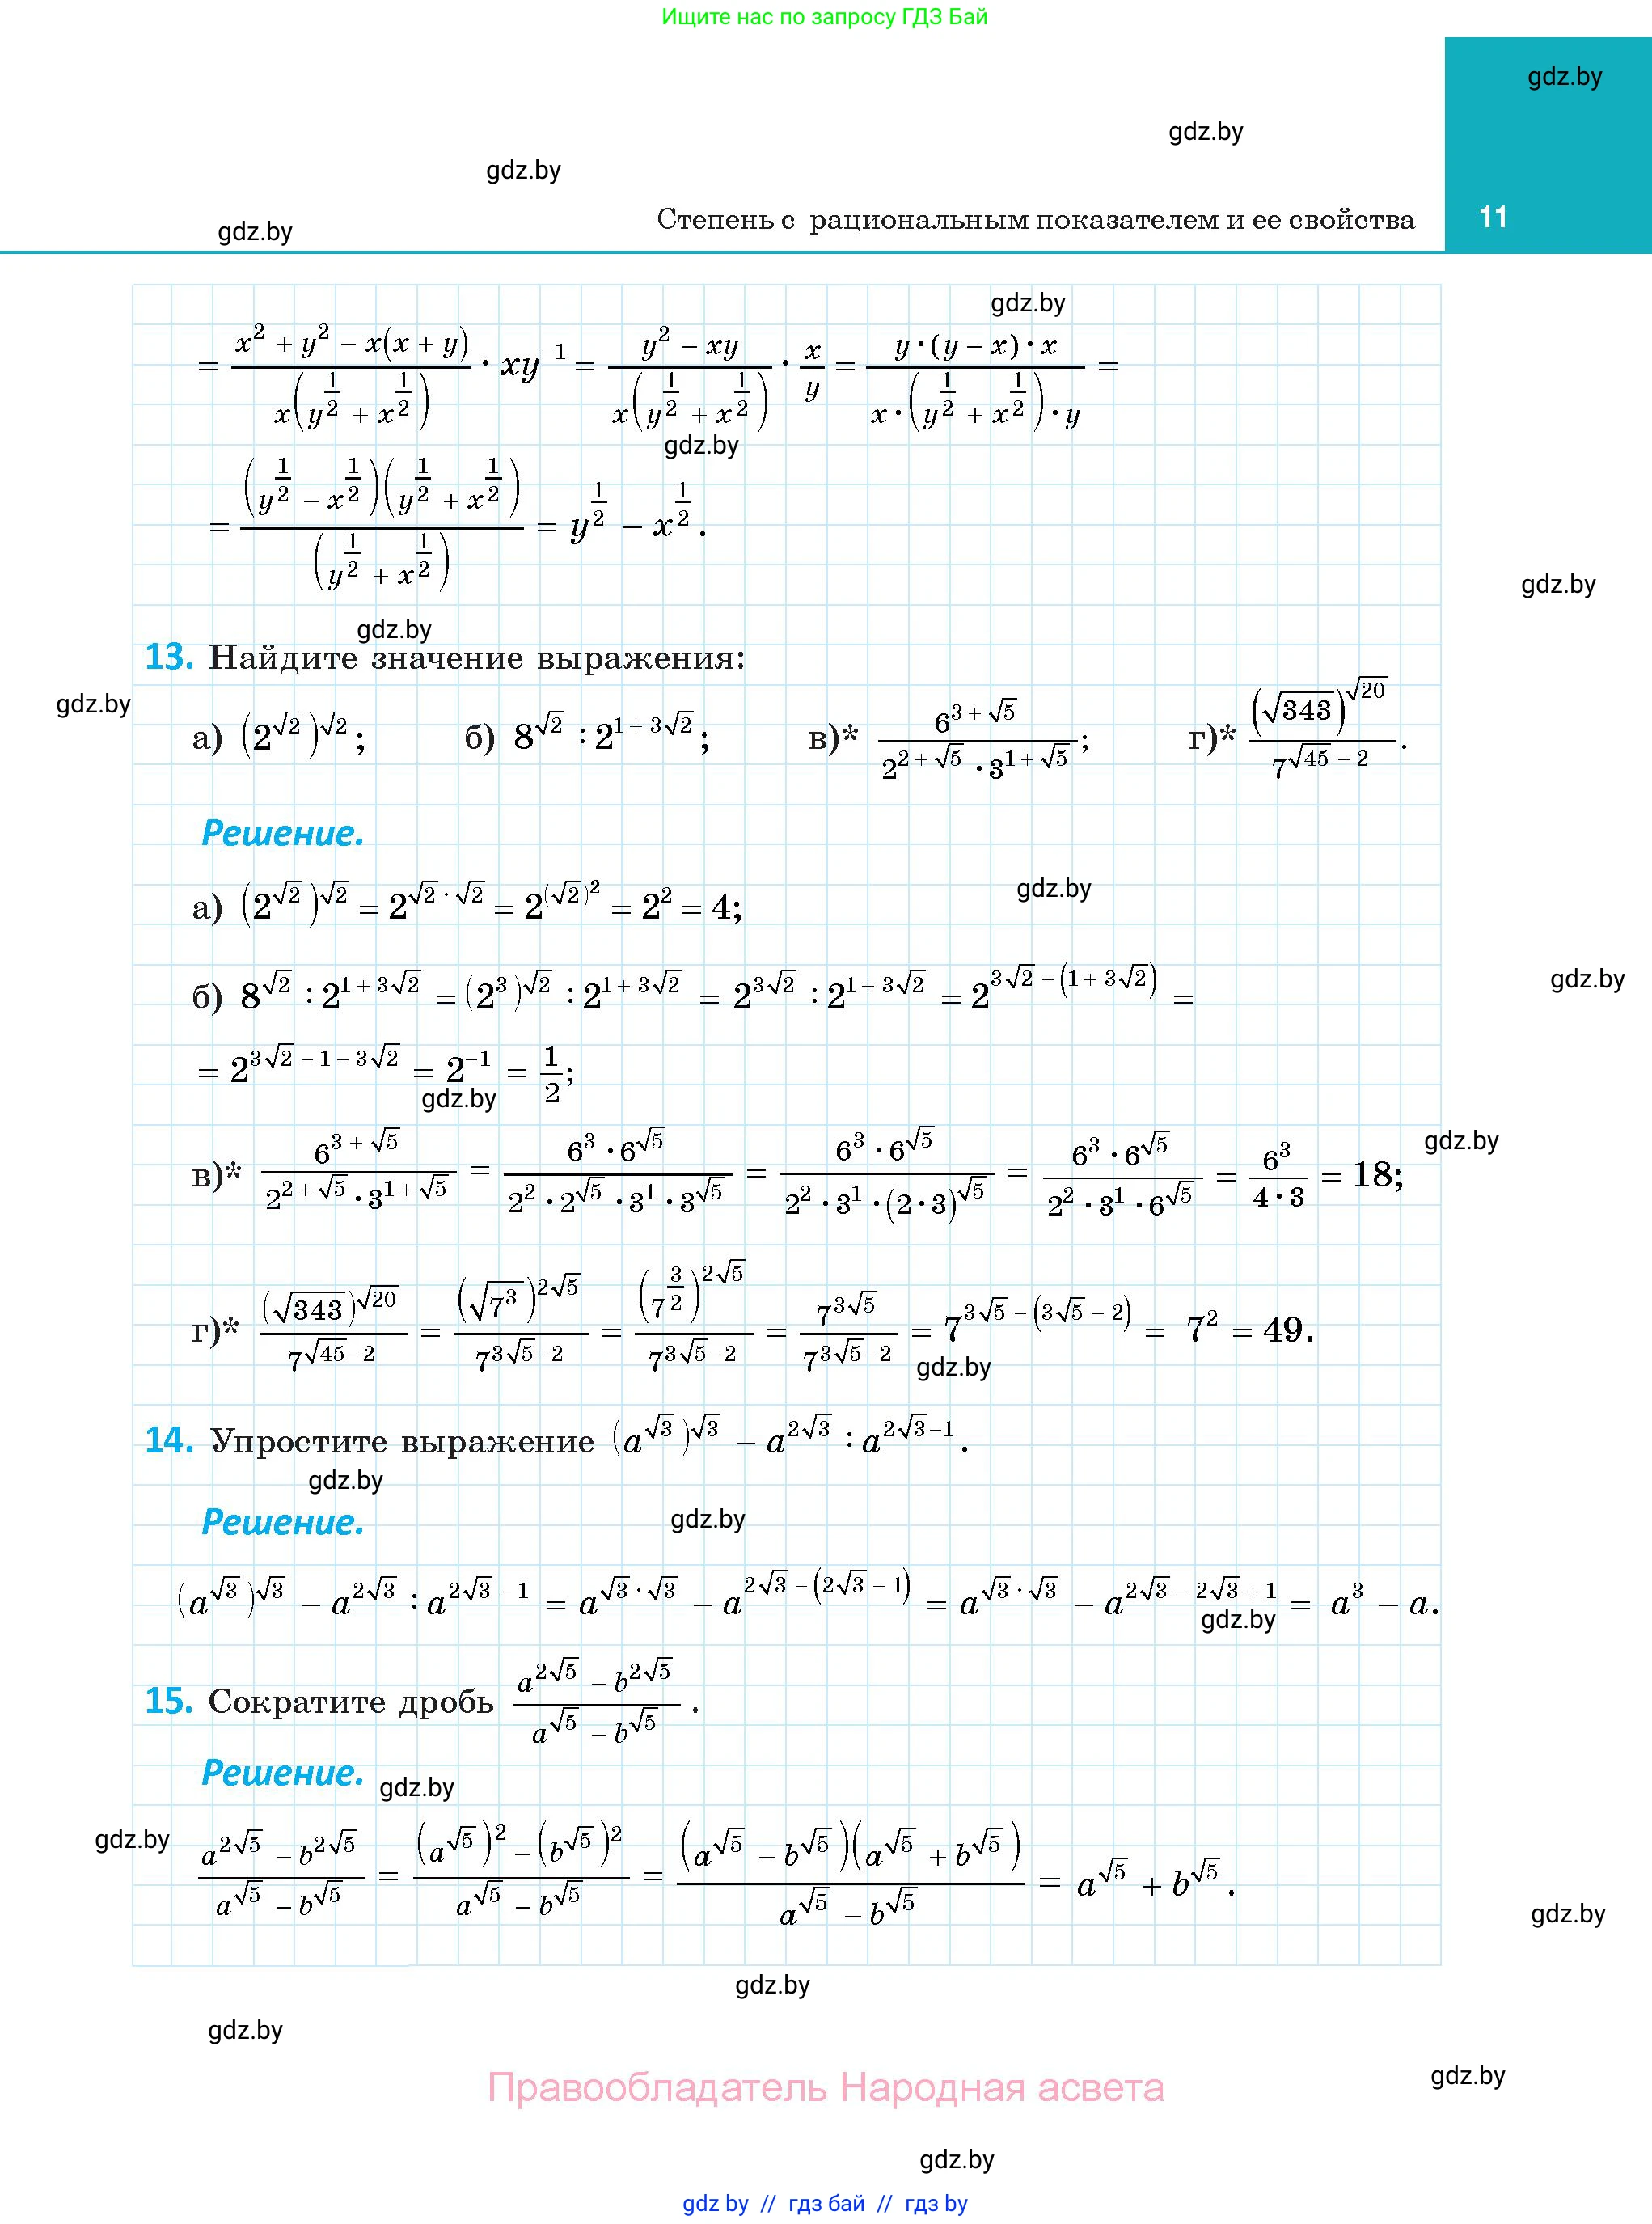 Ищите нас по запросу ГДЗ Бай
gdz.by
gdz.by
gdz.by
Степень с рациональным показателем и ее свойства 11
gdz.by
gdz.by
= \frac{x^2 + y^2 - x(x + y)}{x(y^{\frac{1}{2}} + x^{\frac{1}{2}})} · xy^{-1} = \frac{y^2 - xy}{x(y^{\frac{1}{2}} + x^{\frac{1}{2}})} · \frac{x}{y} = \frac{y·(y - x)·x}{x·(y^{\frac{1}{2}} + x^{\frac{1}{2}})·y} =
gdz.by
= \frac{(y^{\frac{1}{2}} - x^{\frac{1}{2}})(y^{\frac{1}{2}} + x^{\frac{1}{2}})}{(y^{\frac{1}{2}} + x^{\frac{1}{2}})} = y^{\frac{1}{2}} - x^{\frac{1}{2}}.
gdz.by
gdz.by
13. Найдите значение выражения:
gdz.by
а) (2^{√2})^{√2}; б) 8^{√2} : 2^{1 + 3√2}; в)* \frac{6^{3 + √5}}{2^{2 + √5} · 3^{1 + √5}}; г)* \frac{(√343)^{√20}}{7^{√45 - 2}}.
Решение.
а) (2^{√2})^{√2} = 2^{√2 · √2} = 2^{(√2)^2} = 2^2 = 4;
gdz.by
gdz.by
б) 8^{√2} : 2^{1 + 3√2} = (2^3)^{√2} : 2^{1 + 3√2} = 2^{3√2} : 2^{1 + 3√2} = 2^{3√2 - (1 + 3√2)} =
= 2^{3√2 - 1 - 3√2} = 2^{-1} = \frac{1}{2};
gdz.by
gdz.by
в)* \frac{6^{3 + √5}}{2^{2 + √5} · 3^{1 + √5}} = \frac{6^3 · 6^{√5}}{2^2 · 2^{√5} · 3^1 · 3^{√5}} = \frac{6^3 · 6^{√5}}{2^2 · 3^1 · (2 · 3)^{√5}} = \frac{6^3 · 6^{√5}}{2^2 · 3^1 · 6^{√5}} = \frac{6^3}{4 · 3} = 18;
г)* \frac{(√343)^{√20}}{7^{√45 - 2}} = \frac{(√{7^3})^{2√5}}{7^{3√5 - 2}} = \frac{(7^{\frac{3}{2}})^{2√5}}{7^{3√5 - 2}} = \frac{7^{3√5}}{7^{3√5 - 2}} = 7^{3√5 - (3√5 - 2)} = 7^2 = 49.
gdz.by
14. Упростите выражение (a^{√3})^{√3} - a^{2√3} : a^{2√3 - 1}.
gdz.by
gdz.by
Решение.
(a^{√3})^{√3} - a^{2√3} : a^{2√3 - 1} = a^{√3 · √3} - a^{2√3 - (2√3 - 1)} = a^{√3 · √3} - a^{2√3 - 2√3 + 1} = a^3 - a.
gdz.by
15. Сократите дробь \frac{a^{2√5} - b^{2√5}}{a^{√5} - b^{√5}}.
Решение.
gdz.by
gdz.by
\frac{a^{2√5} - b^{2√5}}{a^{√5} - b^{√5}} = \frac{(a^{√5})^2 - (b^{√5})^2}{a^{√5} - b^{√5}} = \frac{(a^{√5} - b^{√5})(a^{√5} + b^{√5})}{a^{√5} - b^{√5}} = a^{√5} + b^{√5}.
gdz.by
gdz.by
gdz.by
gdz.by
Правообладатель Народная асвета
gdz.by
gdz by // гдз бай // гдз by